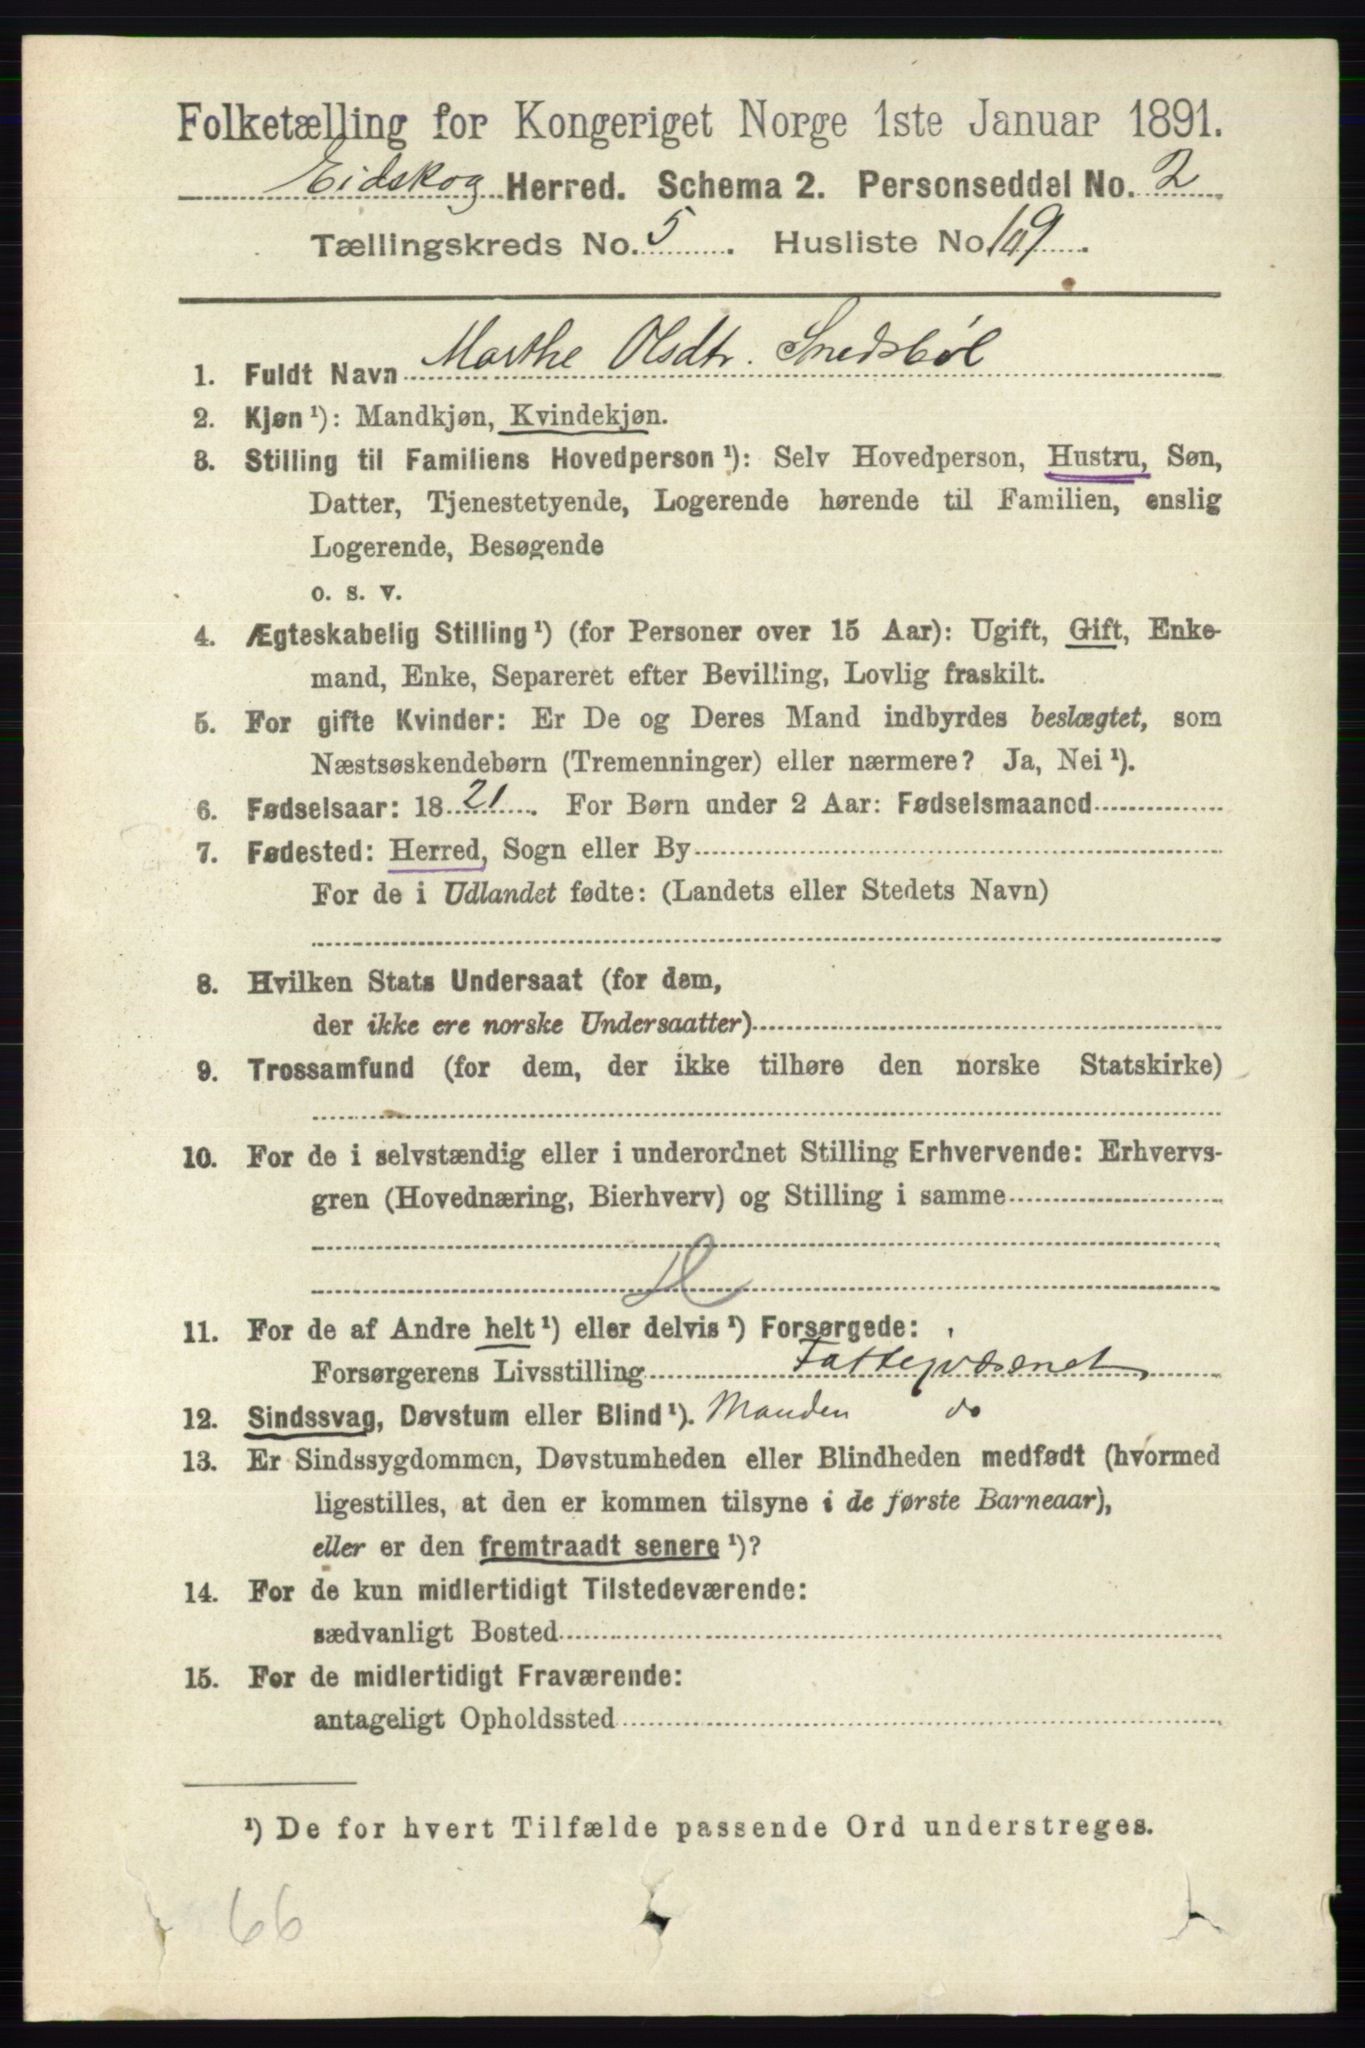 Folketælling for Kongeriget Norge 1ste Januar 1891.
Eidskog Herred. Schema 2. Personseddel No. 2
Tællingskreds No. 5. Husliste No. 149.
1. Fuldt Navn Marthe Olsdtr. Snedsböl
2. Kjøn ¹): Mandkjøn, Kvindekjøn.
3. Stilling til Familiens Hovedperson ¹): Selv Hovedperson, Hustru, Søn,
Datter, Tjenestetyende, Logerende hørende til Familien, enslig
Logerende, Besøgende
o. s. v.
4. Ægteskabelig Stilling ¹) (for Personer over 15 Aar): Ugift, Gift, Enke-
mand, Enke, Separeret efter Bevilling, Lovlig fraskilt.
5. For gifte Kvinder: Er De og Deres Mand indbyrdes beslægtet, som
Næstsøskendebørn (Tremenninger) eller nærmere? Ja, Nei ¹).
6. Fødselsaar: 1821. For Børn under 2 Aar: Fødselsmaaned
7. Fødested: Herred, Sogn eller By
For de i Udlandet fødte: (Landets eller Stedets Navn)
8. Hvilken Stats Undersaat (for dem,
der ikke ere norske Undersaatter)
9. Trossamfund (for dem, der ikke tilhøre den norske Statskirke)
10. For de i selvstændig eller i underordnet Stilling Erhvervende: Erhvervs-
gren (Hovednæring, Bierhverv) og Stilling i samme
11. For de af Andre helt ¹) eller delvis ¹) Forsørgede:
Forsørgerens Livsstilling Fattigvæsenet
12. Sindssvag, Døvstum eller Blind ¹). Manden do
13. Er Sindssygdommen, Døvstumheden eller Blindheden medfødt (hvormed
ligestilles, at den er kommen tilsyne i de første Barneaar),
eller er den fremtraadt senere ¹)?
14. For de kun midlertidigt Tilstedeværende:
sædvanligt Bosted
15. For de midlertidigt Fraværende:
antageligt Opholdssted
¹) De for hvert Tilfælde passende Ord understreges.
66